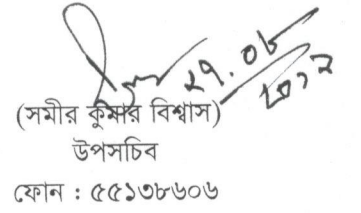 ২৭.০৮
২০১২
(সমীর কুমার বিশ্বাস)
উপসচিব
ফোন : ৫৫১৩৮৬০৬